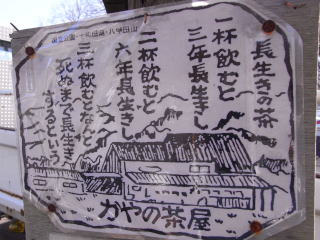 国立公園・十和田湖・八甲田山
長生きの茶
一杯飲むと
三年長生きし
二杯飲むと
六年長生きし
三杯飲むとなんと
死ぬまで長生き
するという
かやの茶屋